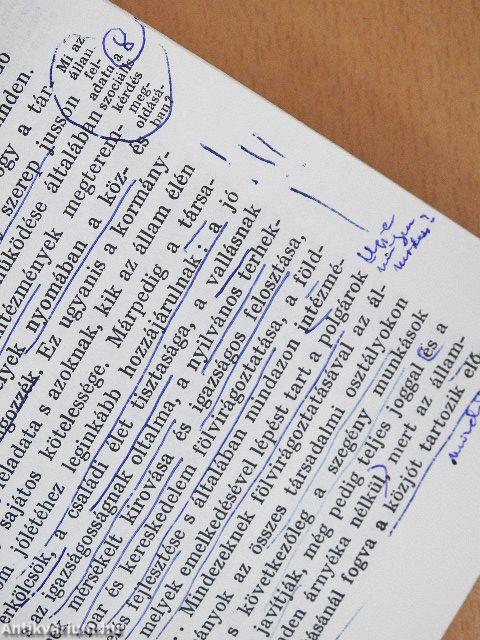 inden.
ogy a tár-
szerep jusson
működése általában
intézmények megterem-
nyomában a köz- és
Ez ugyanis a kormány-
feladata s azoknak, kik az állam élén
sajátos kötelessége. Márpedig a társa-
jólétéhez leginkább hozzájárulnak: a jó
erkölcsök, a családi élet tisztasága, a vallásnak
az igazságosságnak oltalma, a nyilvános terhek-
mérsékelt kirovása és igazságos felosztása,
és kereskedelem fölvirágoztatása, a föld-
fejlesztése s általában mindazon intézmé-
melyek emelkedésével lépést tart a polgárok
: Mindezeknek fölvirágoztatásával az ál-
az összes társadalmi osztályokon
s következőleg a szegény munkások
javítják, még pedig teljes joggal és a
len árnyéka nélkül, mert az állam-
fogva a közjót tartozik elő
Mi az
állam
fel-
adata a
szociális
kérdés
meg-
oldásá-
ban?
8
Antikvárium.hu